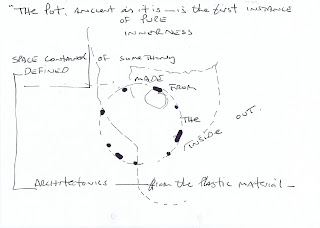 "The Pot, ANCIENT as it is — is the first INSTANCE
OF PURE
INNERNESS
SPACE CONTAINED OF SOMETHING
DEFINED
MADE
FROM
THE
INSIDE OUT.
ARCHITECTONICS from the Plastic Material —